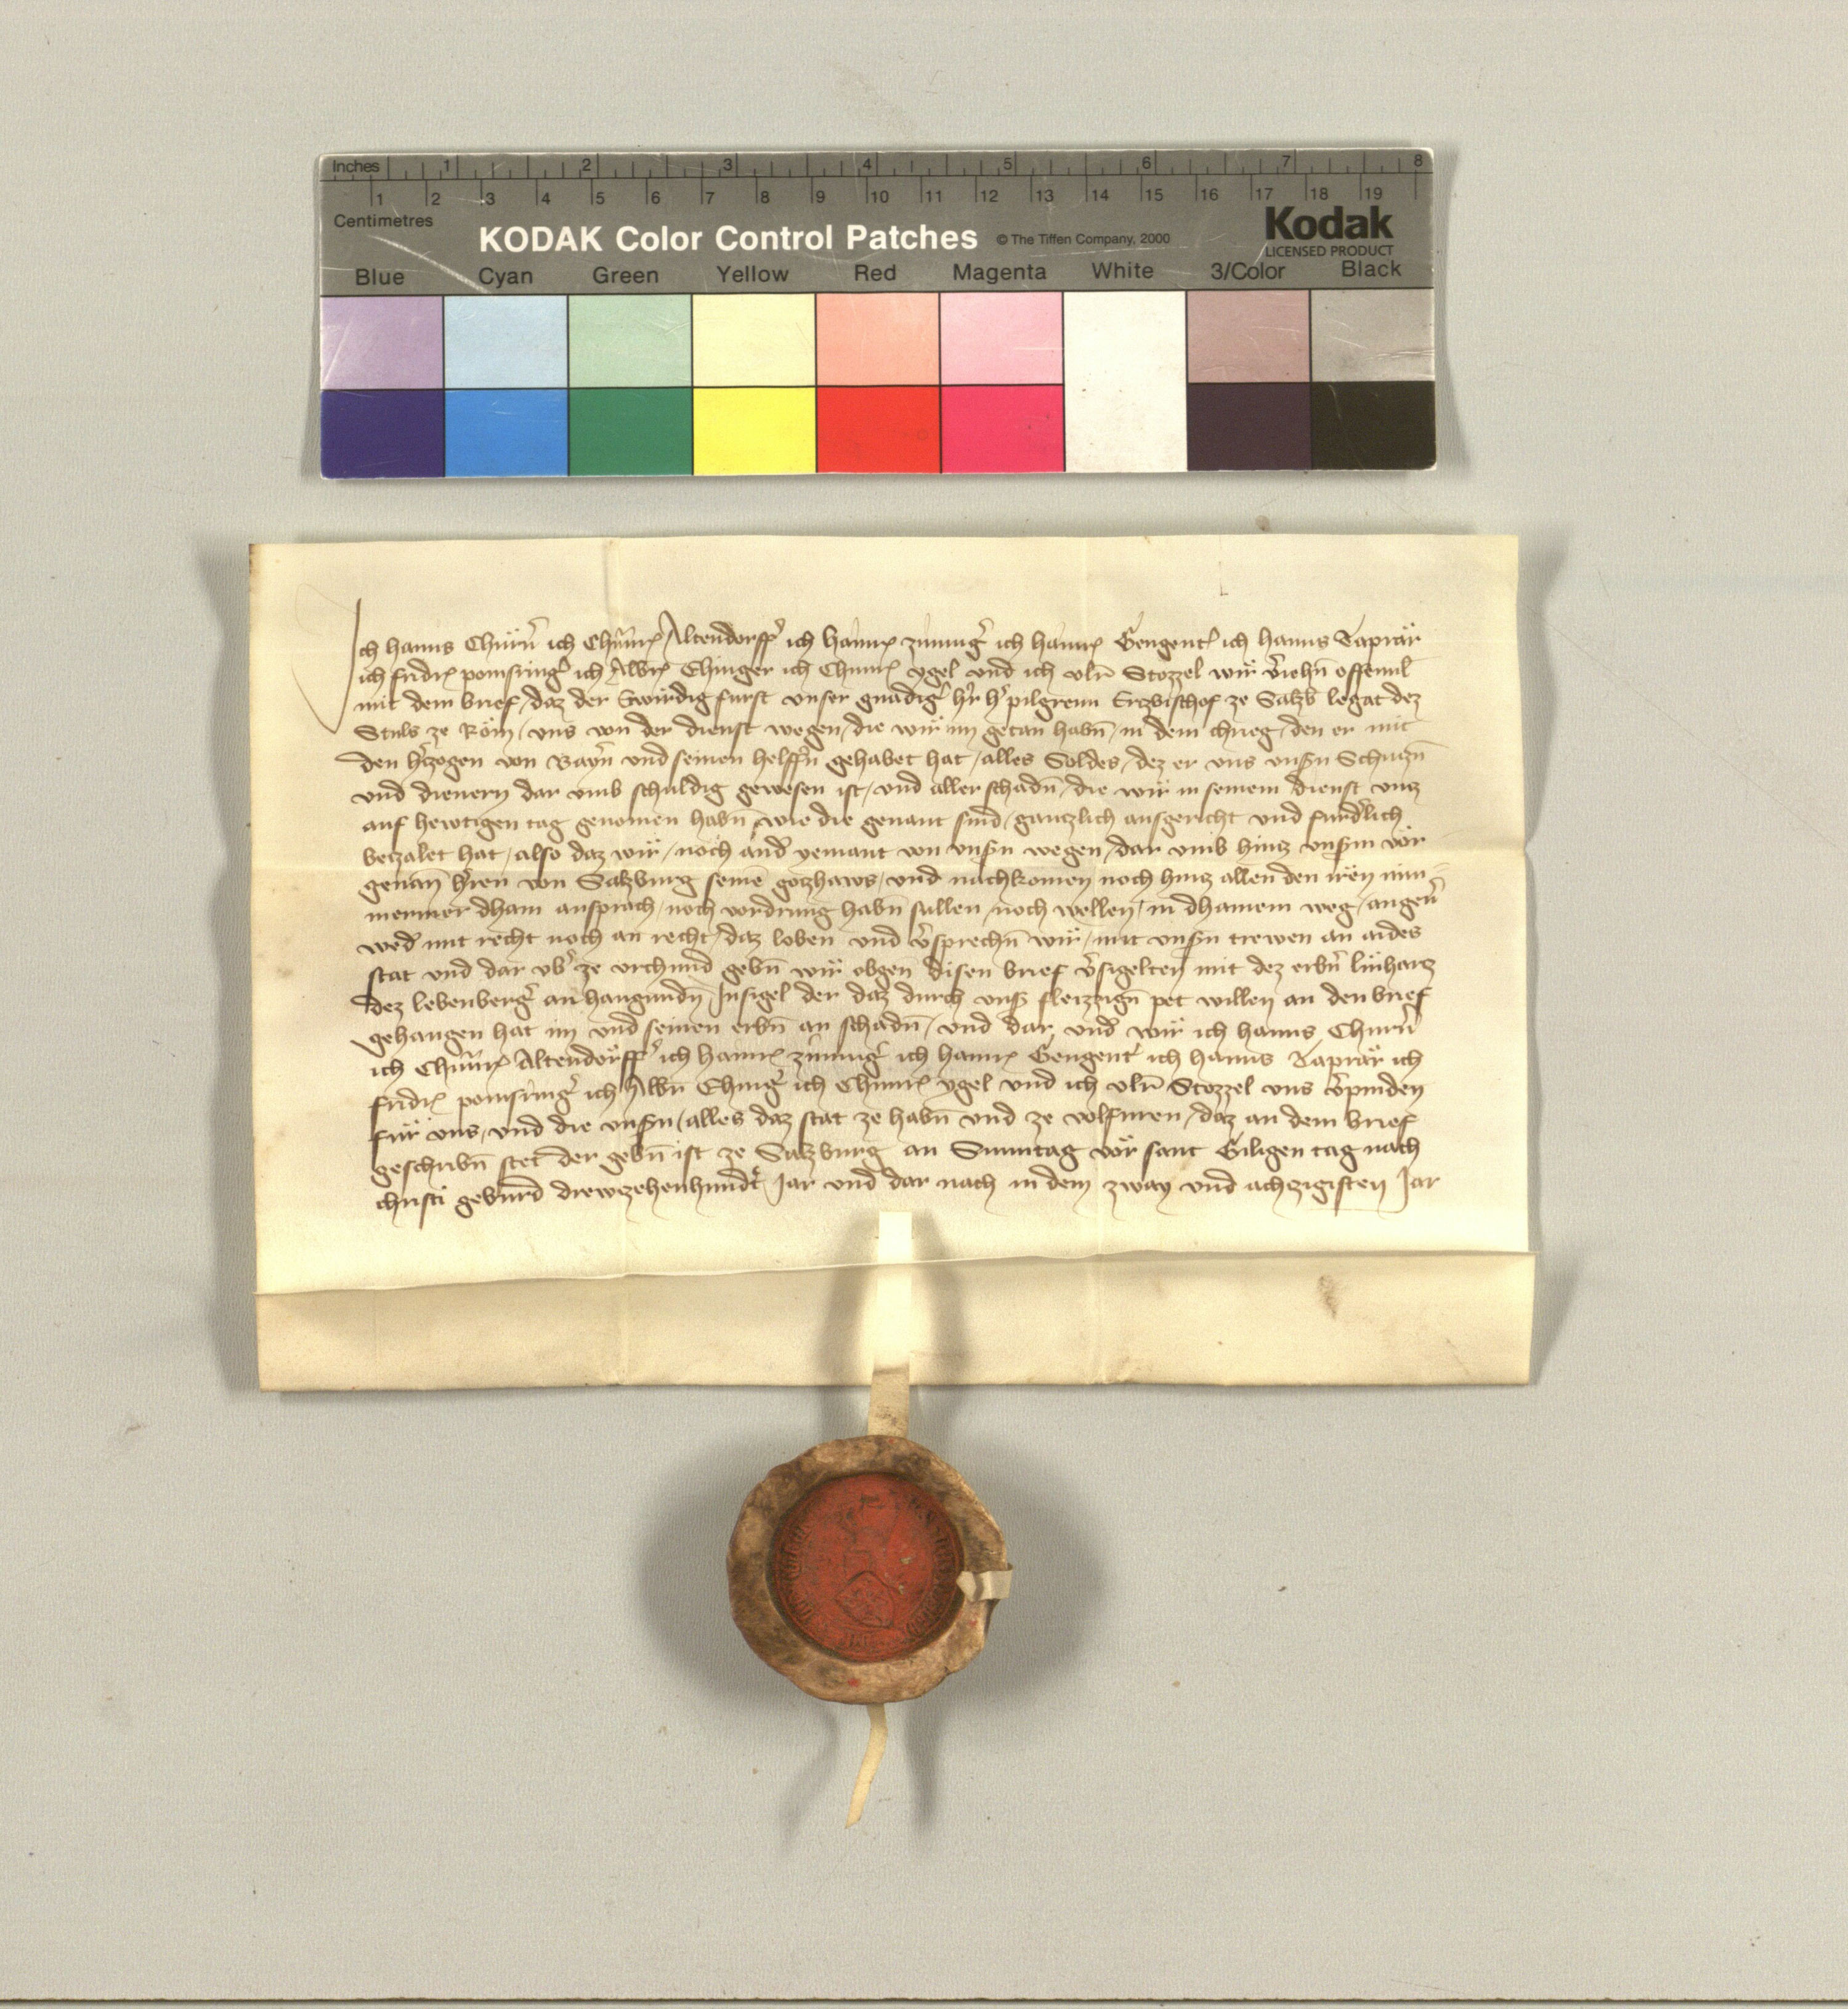 Inches 1 2 3 4 5 6 7 8
1 2 3 4 5 6 7 8 9 10 11 12 13 14 15 16 17 18 19
Centimetres
KODAK Color Control Patches © The Tiffen Company, 2000 Kodak
LICENSED PRODUCT
Blue Cyan Green Yellow Red Magenta White 3/Color Black
Ich hanns ich Altendorff ich ich ich hanns Taprär
ich ich Ehinger ich ygel und ich ulr Stozzel wir
mit dem brief / daz der furst unser pilgreim Erzbischof ze Salzb legat dez
Stuls ze Röm / uns von der dienst wegen / die wir im getan habn / in dem chrieg / den er mit
den hzogen von Bayrn und seinen helffern gehabet hat / alles Soldes / dez er uns unsern
und dienern dar umb schuldig gewesen ist / und aller schadn / die wir in seinem dienst untz
auf hewtigen tag genomen habn / wie die genant sind / gantzlich ausgericht und
betzalet hat / also daz wir / noch and yemant von unsern wegen / dar umb hintz unserm vor
genan hren von Salzburg seine gotzhaws / und nachkomen / noch hintz allen den iren nim
mermer dhain ansprach / noch vordrung habn sullen / noch wellen / in dhainem weg /
wed mit recht noch an recht / daz loben und vsprechn wir / mit unsern trewen an aides
stat und dar ub ze urchund gebn wir obgen disen brief vsigelten mit dez erbn
dez lebenberg an hangundn Insigel der daz durch unser fleizzign pet willen an den brief
gehangen hat im und seinen erbn an schadn / und dar und wir ich hanns
ich Altendorff ich ich ich hanns Taprär ich
ich Ehing ich ygel und ich ulr Stozzel uns vpinden
für uns / und die unsern / alles daz stat ze habn und ze volfuren / daz an dem brief
geschribn stet der gebn ist ze Salzburg an Sunntag vor sant Giligen tag nach
christi geburd drewzehenhundt Jar und dar nach in dem zway und achzigisten Jar